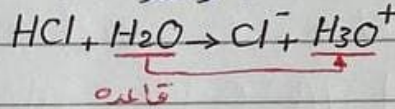 HCl + H2O → Cl⁻ + H3O⁺
قاعدة